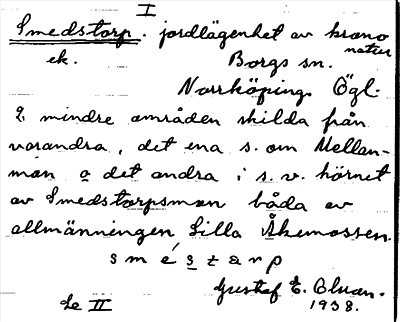 I
Smedstorp. jordlägenhet av krono
natur
ek. Borgs sn.
Norrköping. Ögl.
2 mindre områden skilda från
varandra, det ena s. om Mellan-
man o det andra i s. v. hörnet
av Smedstorpsman båda av
allmänningen Lilla Åkemossen.
s m é s t a r p
Gustaf E.
Se II 1938.